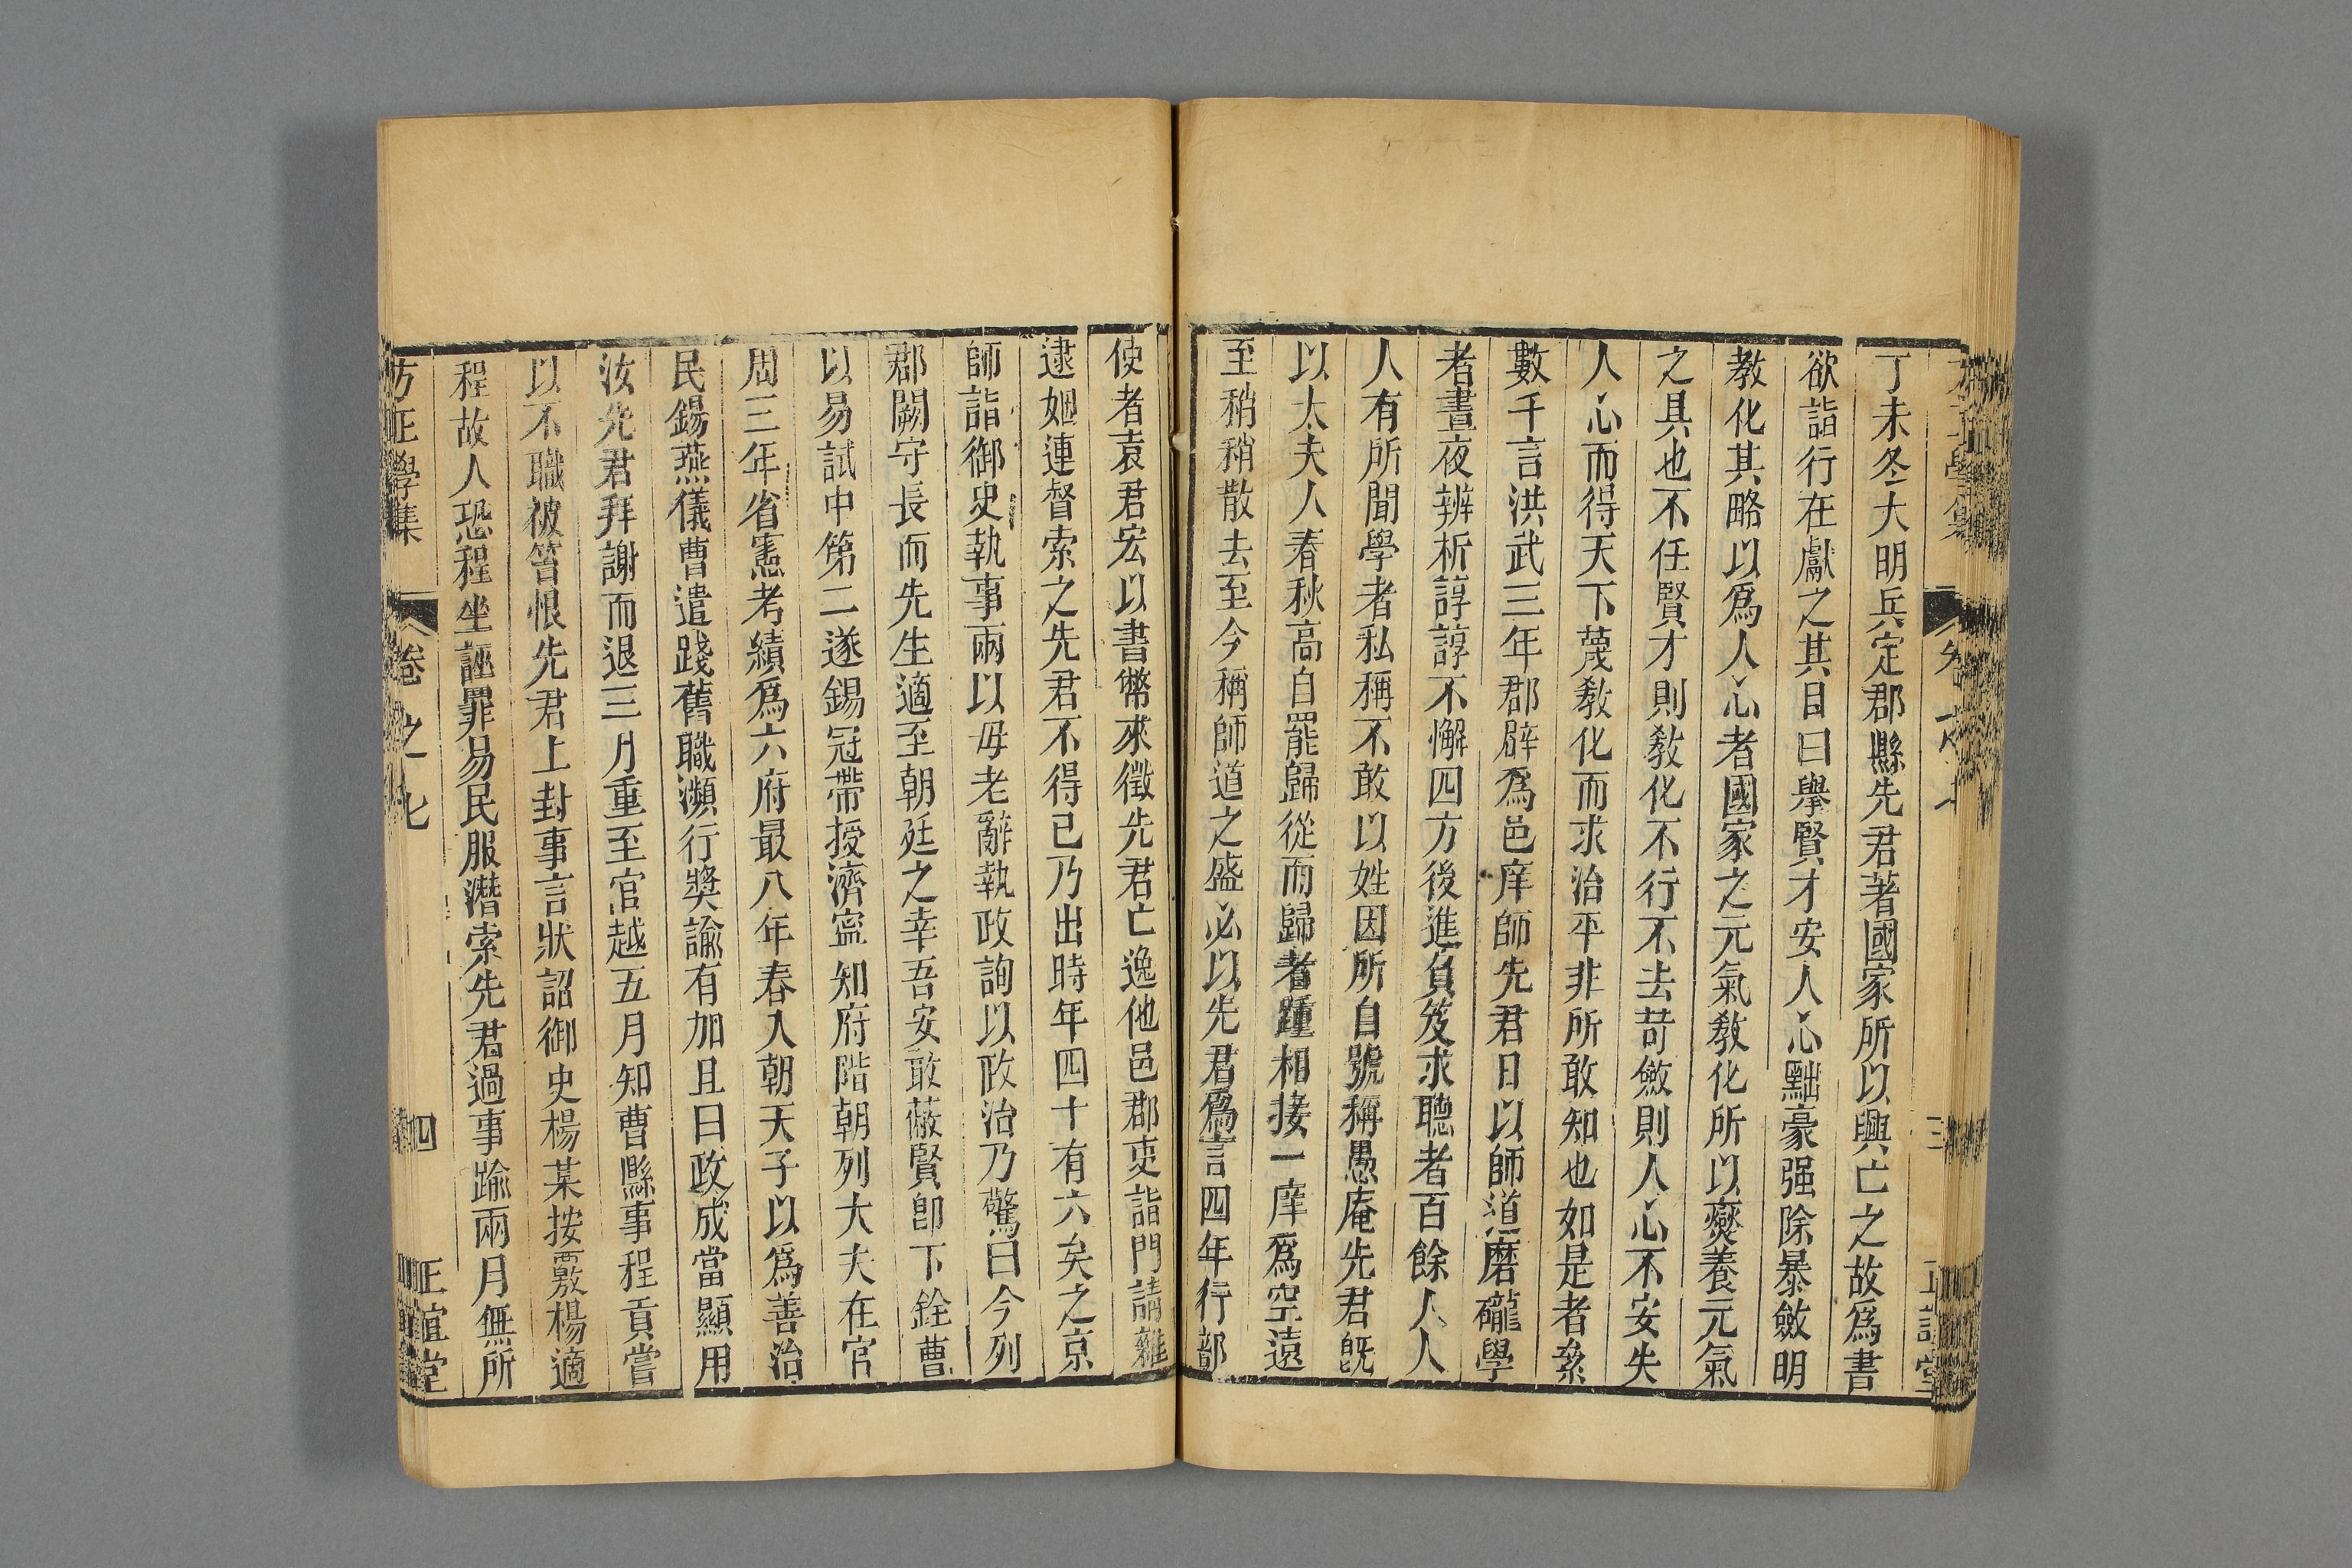 丁未冬大明兵定郡縣先君著國家所以興亡之故爲書
欲詣行在獻之其目曰舉賢才安人心黜豪强除暴斂明
教化其略以爲人心者國家之元氣教化所以爕養元氣
之具也不任賢才則教化不行不去苛斂則人心不安失
人心而得天下蔑教化而求治平非所敢知也如是者纍
數千言洪武三年郡辟爲邑庠師先君日以師道磨礲學
者晝夜辨析諄諄不懈四方後進負笈求聽者百餘人人
人有所聞學者私稱不敢以姓因所自號稱愚庵先君旣
以太夫人春秋高自罷歸從而歸者踵相接一庠爲空遠
至稍稍散去至今稱師道之盛必以先君爲言四年行部
使者袁君宏以書幣來徵先君亡逸他邑郡吏詣門請雜
逮姻連督索之先君不得已乃出時年四十有六矣之京
師詣御史執事兩以母老辭執政詢以政治乃驚曰今列
郡闕守長而先生適至朝廷之幸吾安敢蔽賢卽下銓曹
以易試中第二遂錫冠帶授濟寧知府階朝列大夫在官
周三年省憲考績爲六府最八年春入朝天子以爲善治
民錫燕儀曹遣踐舊職瀕行獎諭有加且曰政成當顯用
汝先君拜謝而退三月重至官越五月知曹縣事程貢嘗
以不職被笞恨先君上封事言狀詔御史楊某按覈楊適
程故人恐程坐誣罪易民服潛索先君過事踰兩月無所
方正學集 卷之七 四 正誼堂